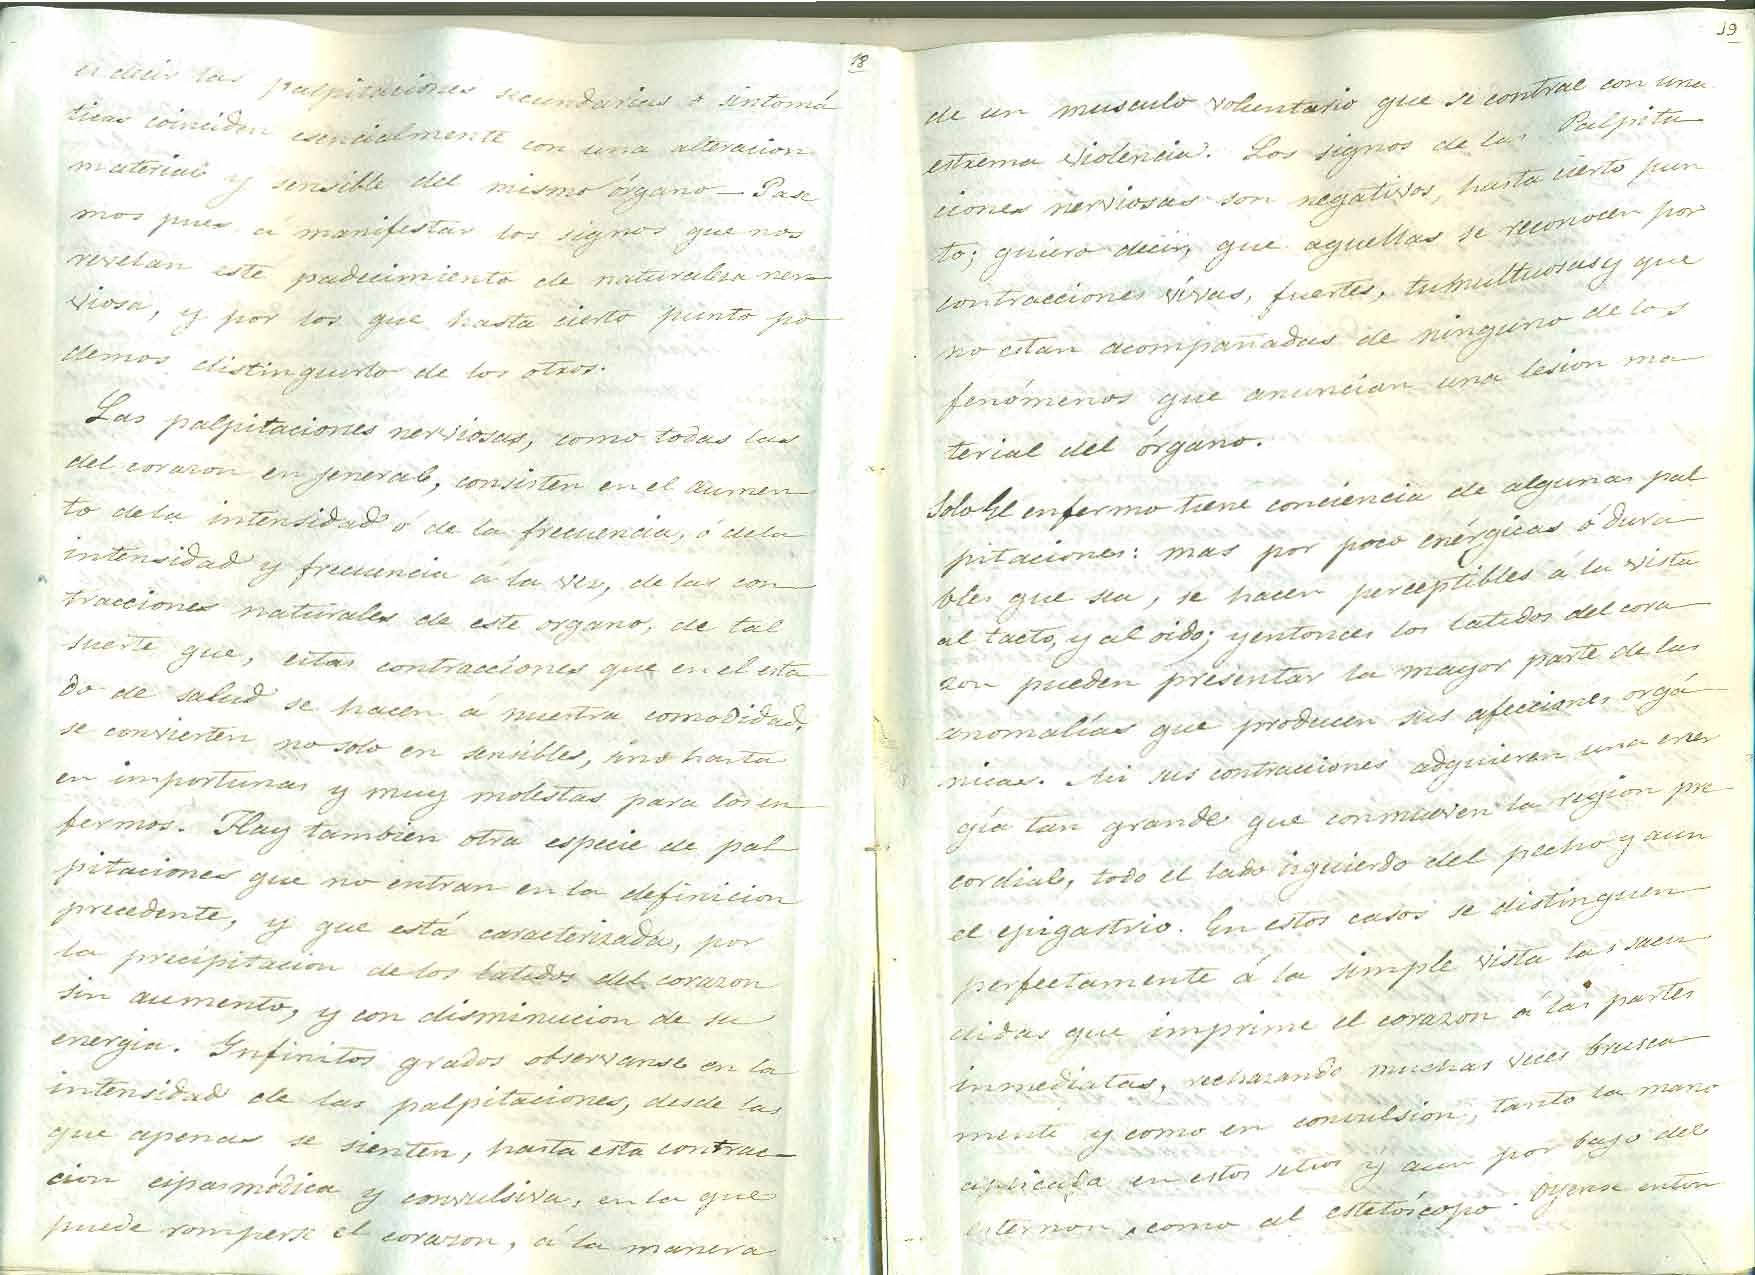 18
es decir las palpitaciones secundarias o sintomá
ticas coinciden esencialmente con una alteracion
material y sensible del mismo órgano — Pase
mos pues á manifestar los signos que nos
revelan este padecimiento de naturaleza ner
viosa, y por los que hasta cierto punto po
demos distinguirlo de los otros.
Las palpitaciones nerviosas, como todas las
del corazon en jeneral, consisten en el aumen
to de la intensidad ó de la frecuencia, ó de la
intensidad y frecuencia á la vez, de las con
tracciones naturales de este organo, de tal
suerte que, estas contracciones que en el esta
do de salud se hacen á nuestra comodidad,
se convierten no solo en sensibles, sino hasta
en importunas y muy molestas para los en
fermos. Hay tambien otra especie de pal
pitaciones que no entran en la definicion
precedente, y que está caracterizada, por
la precipitacion de los latidos del corazon
sin aumento, y con disminucion de su
energia. Infinitos grados observanse en la
intensidad de las palpitaciones, desde las
que apenas se sienten, hasta esta contrac
cion espasmódica y convulsiva, en la que
puede romperse el corazon, á la manera
19
de un musculo voluntario que se contrae con una
estrema violencia. Los signos de las Palpita
ciones nerviosas son negativos, hasta cierto pun
to; quiero decir, que aquellas se reconocen por
contracciones vivas, fuertes, tumultuosas y que
no estan acompañadas de ninguno de los
fenómenos que anuncian una lesion ma
terial del órgano.
Solo el enfermo tiene conciencia de algunas pal
pitaciones: mas por poco enérgicas ó dura
bles que sea, se hacen perceptibles a la vista
al tacto, y al oido; y entonces los latidos del cora
zon pueden presentar la mayor parte de las
anomalías que producen sus afecciones orgá
nicas. Asi sus contracciones adquieren una ener
gía tan grande que conmueven la region pre
cordial, todo el lado izquierdo del pecho y aun
el epigastrio. En estos casos se distinguen
perfectamente á la simple vista las sacu
didas que imprime el corazon á las partes
inmediatas, rechazando muchas veces brusca
mente y como en convulsion, tanto la mano
aplicada en estos sitios y aun por bajo del
esternon, como el estetóscopo. Oyense enton